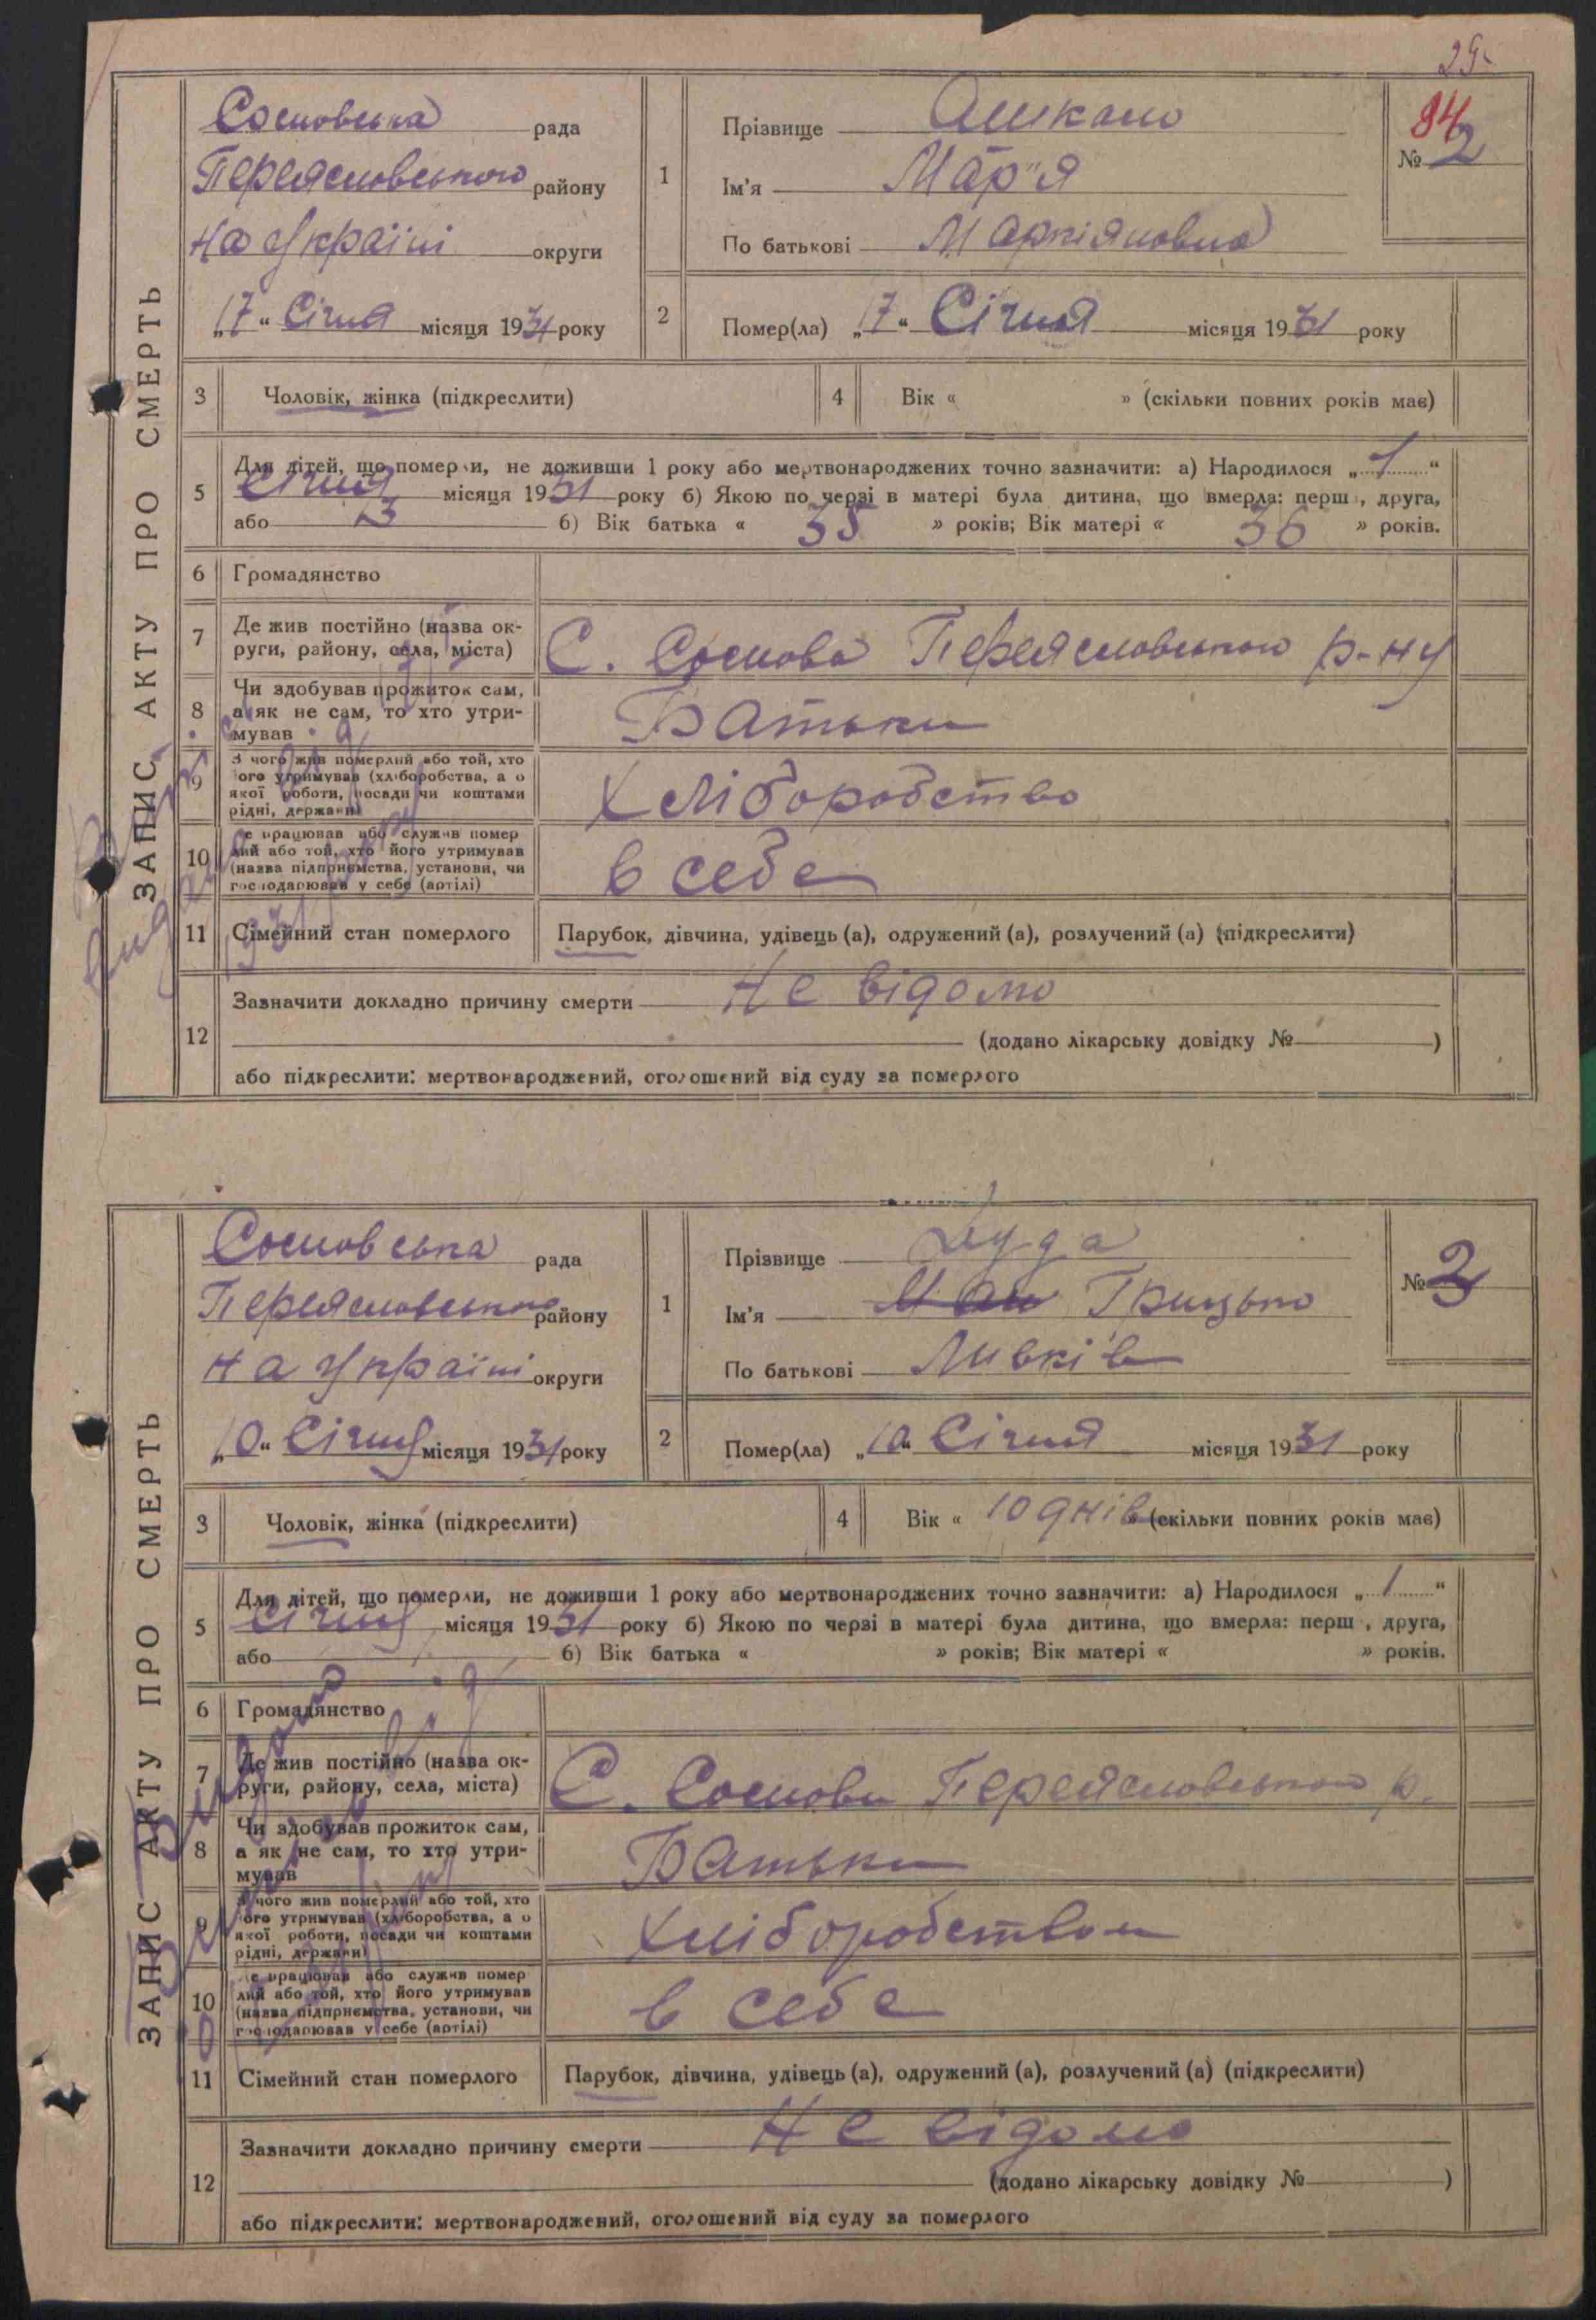 29
ЗАПИС АКТУ ПРО СМЕРТЬ
Сосновська рада
Переясловського району
на Україні округи
„17“ Січня місяця 1931 року
1
Прізвище
Ім'я Мар'я
По батькові
94
№ 2
2
Помер(ла) „17“ Січня місяця 1931 року
3 Чоловік, жінка (підкреслити)
4 Вік « » (скільки повних років має)
5
Для дітей, що померли, не доживши 1 року або мертвонароджених точно зазначити: а) Народилося „1“
Січня місяця 1931 року б) Якою по черзі в матері була дитина, що вмерла: перш , друга,
або 3 б) Вік батька « 35 » років; Вік матері « 36 » років.
6 Громадянство
7 Де жив постійно (назва ок-
руги, району, села, міста)
С. Соснова Переясловського р-ну
8 Чи здобував прожиток сам,
а як не сам, то хто утри-
мував
Батьки
9 З чого жив померлий або той, хто
його утримував (хліборобства, а о
якої роботи, посади чи коштами
рідні, держави)
Хліборобство
10 е працював або служив помер
лий або той, хто його утримував
(назва підприємства, установи, чи
господарював у себе (артілі)
в себе
11 Сімейний стан померлого
Парубок, дівчина, удівець (а), одружений (а), розлучений (а) (підкреслити)
12
Зазначити докладно причину смерти Не відомо
(додано лікарську довідку № )
або підкреслити: мертвонароджений, оголошений від суду за померлого
ЗАПИС АКТУ ПРО СМЕРТЬ
Сосновська рада
Переясловського району
на Україні округи
„10“ Січня місяця 1931 року
1
Прізвище Дуда
Ім'я Грицько
По батькові Ливків
№ 3
2
Помер(ла) „10“ Січня місяця 1931 року
3 Чоловік, жінка (підкреслити)
4 Вік « 10 днів » (скільки повних років має)
5
Для дітей, що померли, не доживши 1 року або мертвонароджених точно зазначити: а) Народилося „1“
Січня місяця 1931 року б) Якою по черзі в матері була дитина, що вмерла: перш , друга,
або б) Вік батька « » років; Вік матері « » років.
6 Громадянство
7 Де жив постійно (назва ок-
руги, району, села, міста)
С. Соснови Переясловського р.
8 Чи здобував прожиток сам,
а як не сам, то хто утри-
мував
Батьки
9 З чого жив померлий або той, хто
його утримував (хліборобства, а о
якої роботи, посади чи коштами
рідні, держави)
Хліборобством
10 е працював або служив помер
лий або той, хто його утримував
(назва підприємства, установи, чи
господарював у себе (артілі)
в себе
11 Сімейний стан померлого
Парубок, дівчина, удівець (а), одружений (а), розлучений (а) (підкреслити)
12
Зазначити докладно причину смерти Не відомо
(додано лікарську довідку № )
або підкреслити: мертвонароджений, оголошений від суду за померлого